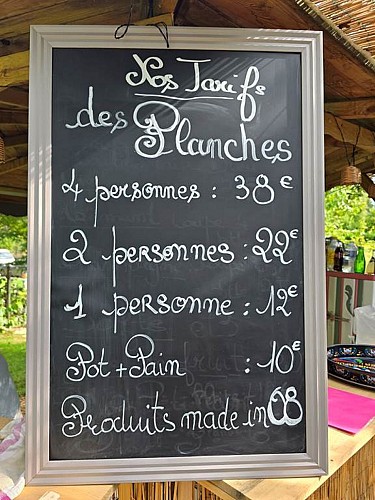 Nos Tarifs
des Planches
4 personnes : 38€
2 personnes : 22€
1 personne : 12€
Pot + Pain : 10€
Produits made in 08